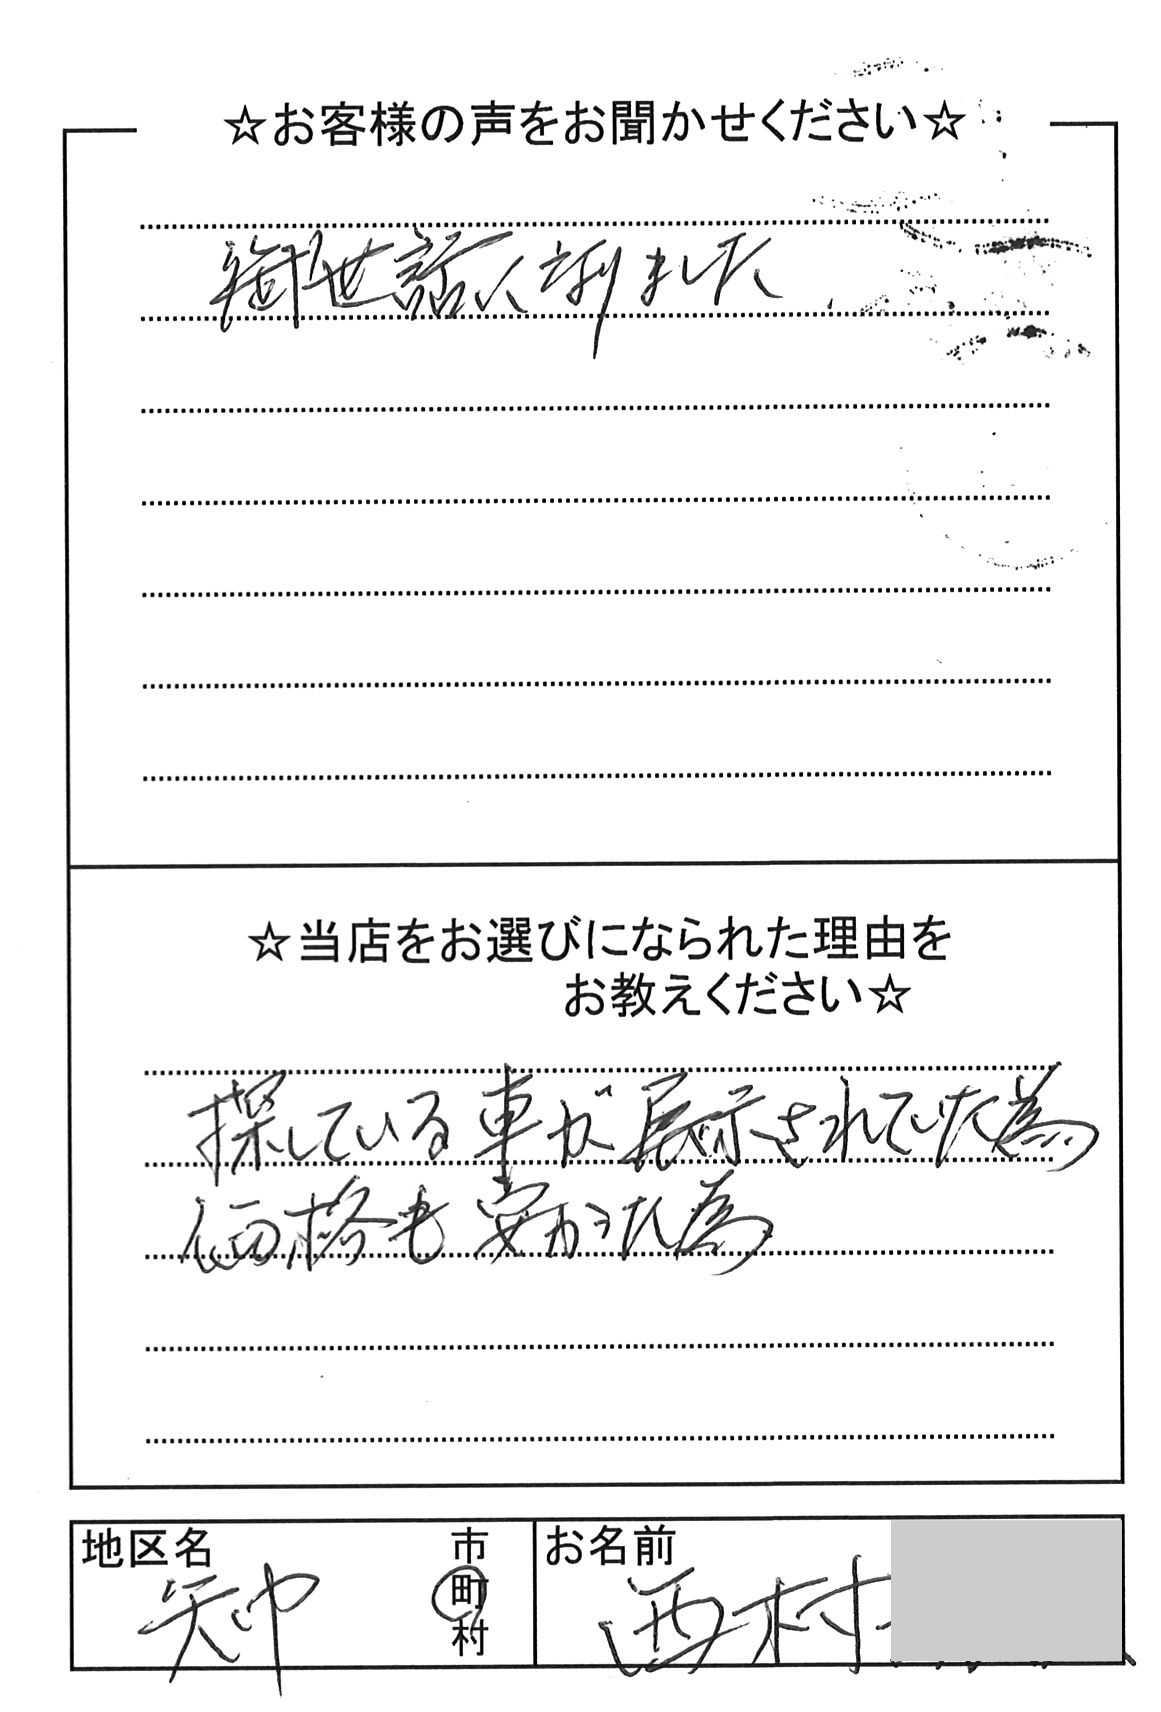 ☆お客様の声をお聞かせください☆
御世話になりました
☆当店をお選びになられた理由を
お教えください☆
探している車が展示されていた為
価格も安かった為
地区名
矢巾
市
町
村
お名前
西村